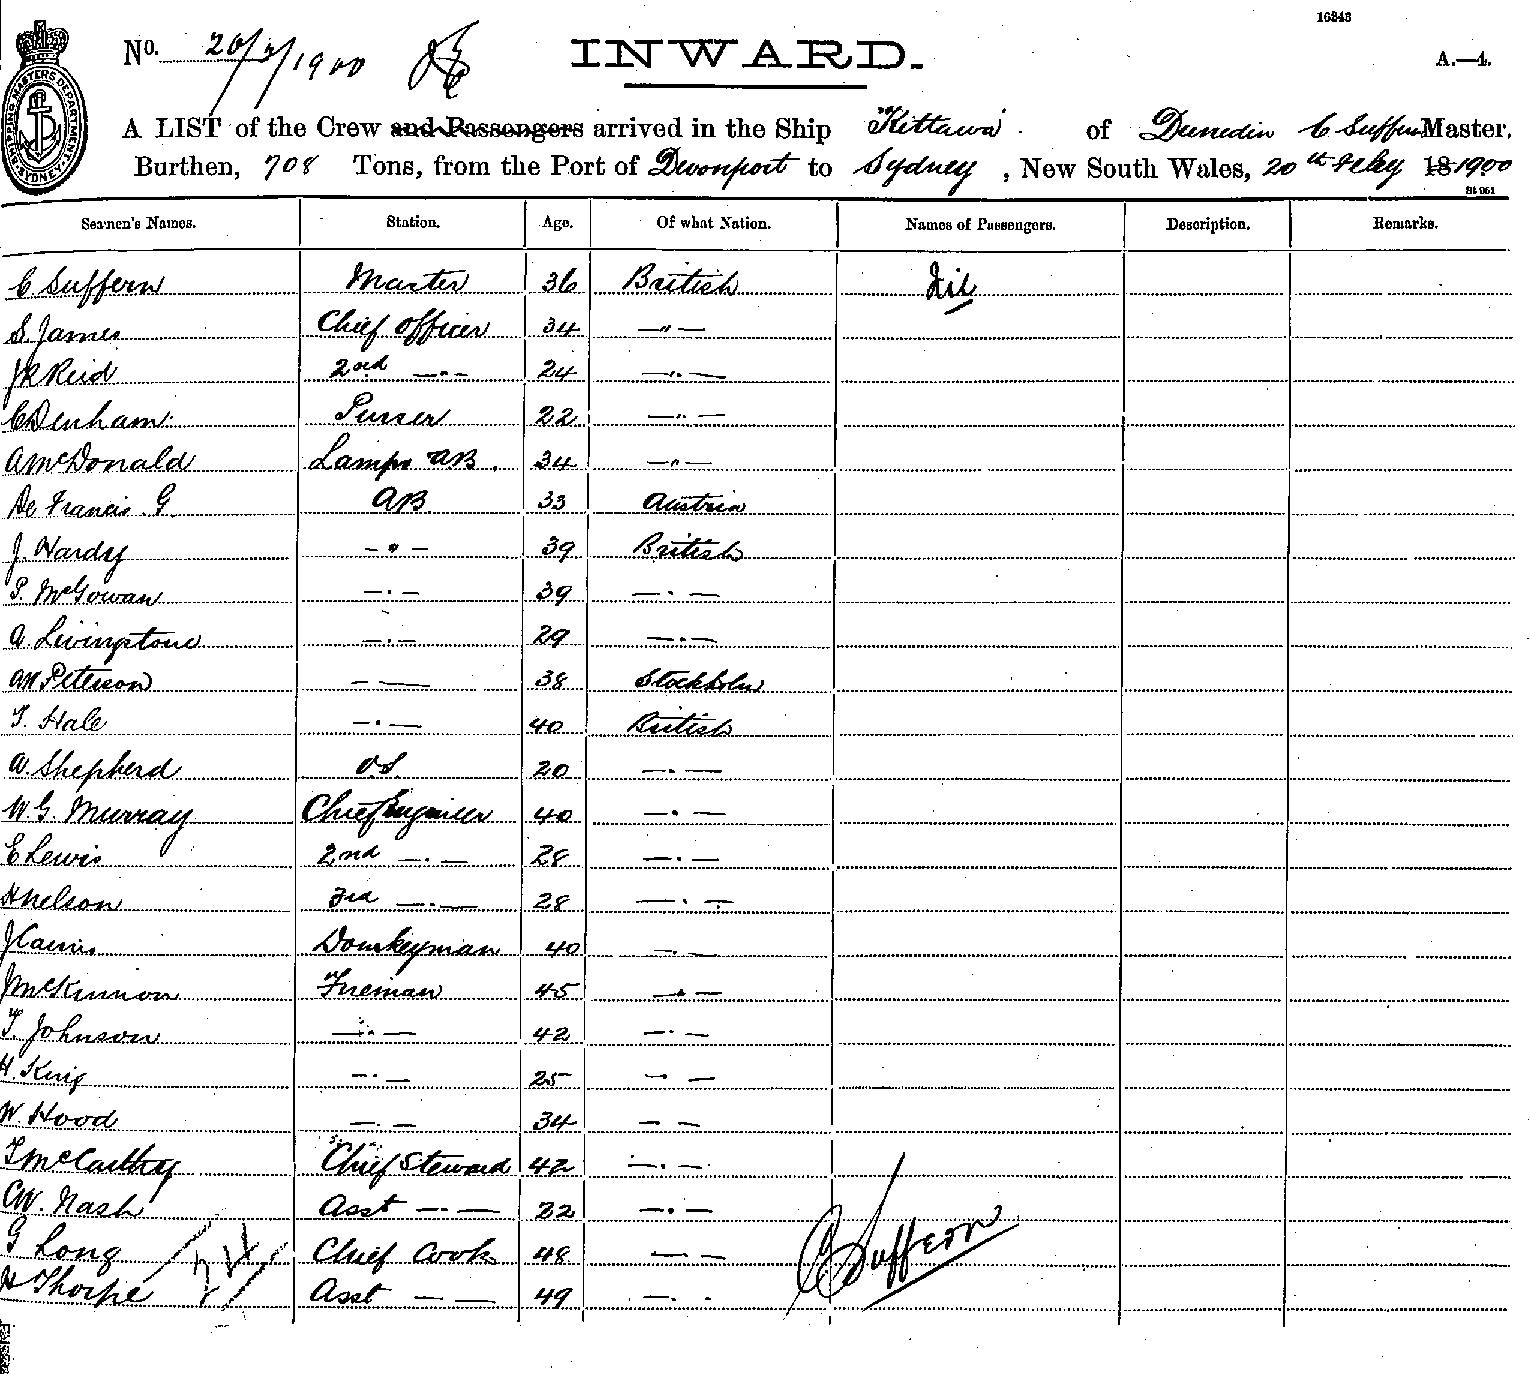 16343
No. 20/2/1900
INWARD.
A.—4.
SHIPPING MASTERS DEPARTMENT SYDNEY
A LIST of the Crew and Passengers arrived in the Ship Kittawa of Dunedin C Suffern Master,
Burthen, 708 Tons, from the Port of Devonport to Sydney, New South Wales, 20th Feby 18 1900
Seamen's Names. Station. Age. Of what Nation. Names of Passengers. Description. Remarks.
C Suffern Master 36 British Nil
S. James Chief Officer 34 —"—
JR Reid 2nd —"— 24 —"—
C Denham Purser 22 —"—
A McDonald Lamps AB. 34 —"—
De Francis. G. AB 33 Austria
J. Hardy —"— 39 British
P. McGowan —"— 39 —"—
A Livingstone —"— 29 —"—
AM Peterson — — 38 Stockholm
T. Hale —"— 40 British
A. Shepherd OS 20 —"—
W. G. Murray Chief Engineer 40 —"—
E Lewis 2nd —"— 28 —"—
H Nelson 3rd —"— 28 —"—
J Cairns Donkeyman 40 —"—
J McKinnon Fireman 45 —"—
T. Johnson —"— 42 —"—
H. King —"— 25 — —
W. Hood —"— 34 — —
T McCarthy Chief Steward 42 —"—
CW. Nash Asst —"— 22 —"—
G Long Chief Cook 48 — —
H Thorpe Asst — — 49 —"—
24
C Suffern